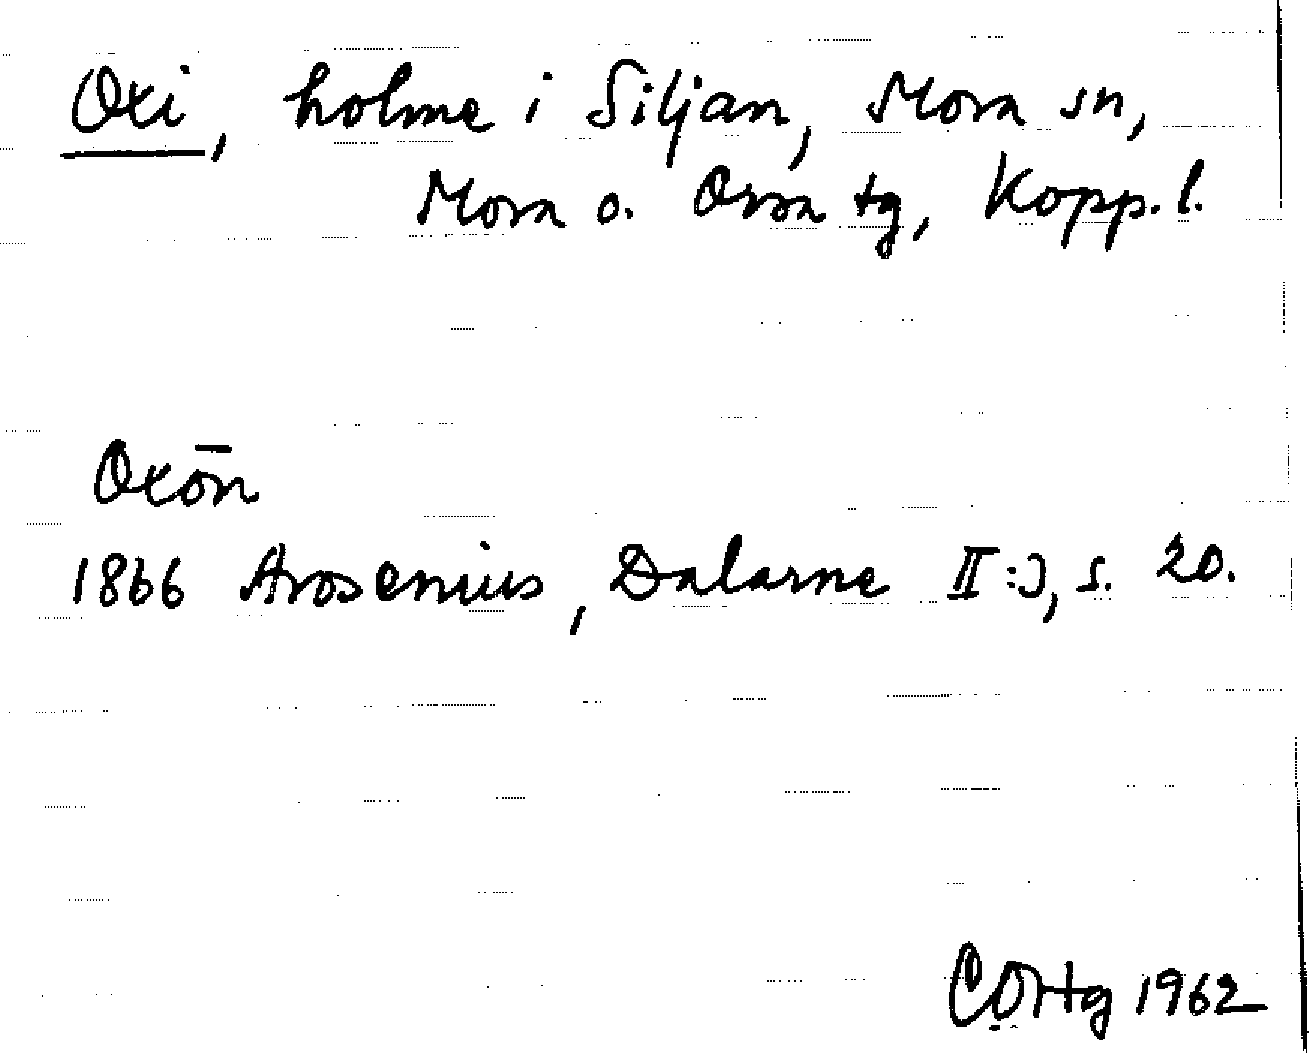 Oxi, holme i Siljan, Mora sn,
Mora o. Orsa tg, Kopp. l.
Oxön
1866 Arosenius, Dalarne II:, s. 20.
1962